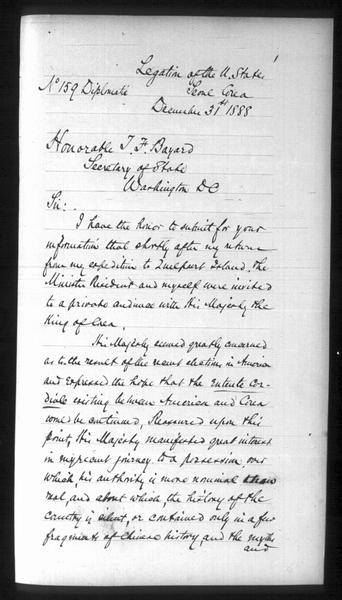 1
Legation of the U. States
No 159 Diplomatic Seoul Corea
December 31st 1888
Honorable T. F. Bayard
Secretary of State
Washington DC
Sir:
I have the honor to submit for your
information that shortly after my return
from my expedition to Quelpart Island, the
Minister Resident and myself were invited
to a private audience with His Majesty the
King of Corea.
His Majesty seemed greatly concerned
as to the result of the recent elections in America
and expressed the hope that the entente cor-
diale existing between America and Corea
would be continued, Reassured upon this
point, His Majesty manifested great interest
in my recent journey to a possession, over
which, his authority is more nominal than
real, and about which, the history of the
country is silent, or contained only in a few
fragments of Chinese history, and the myths
and